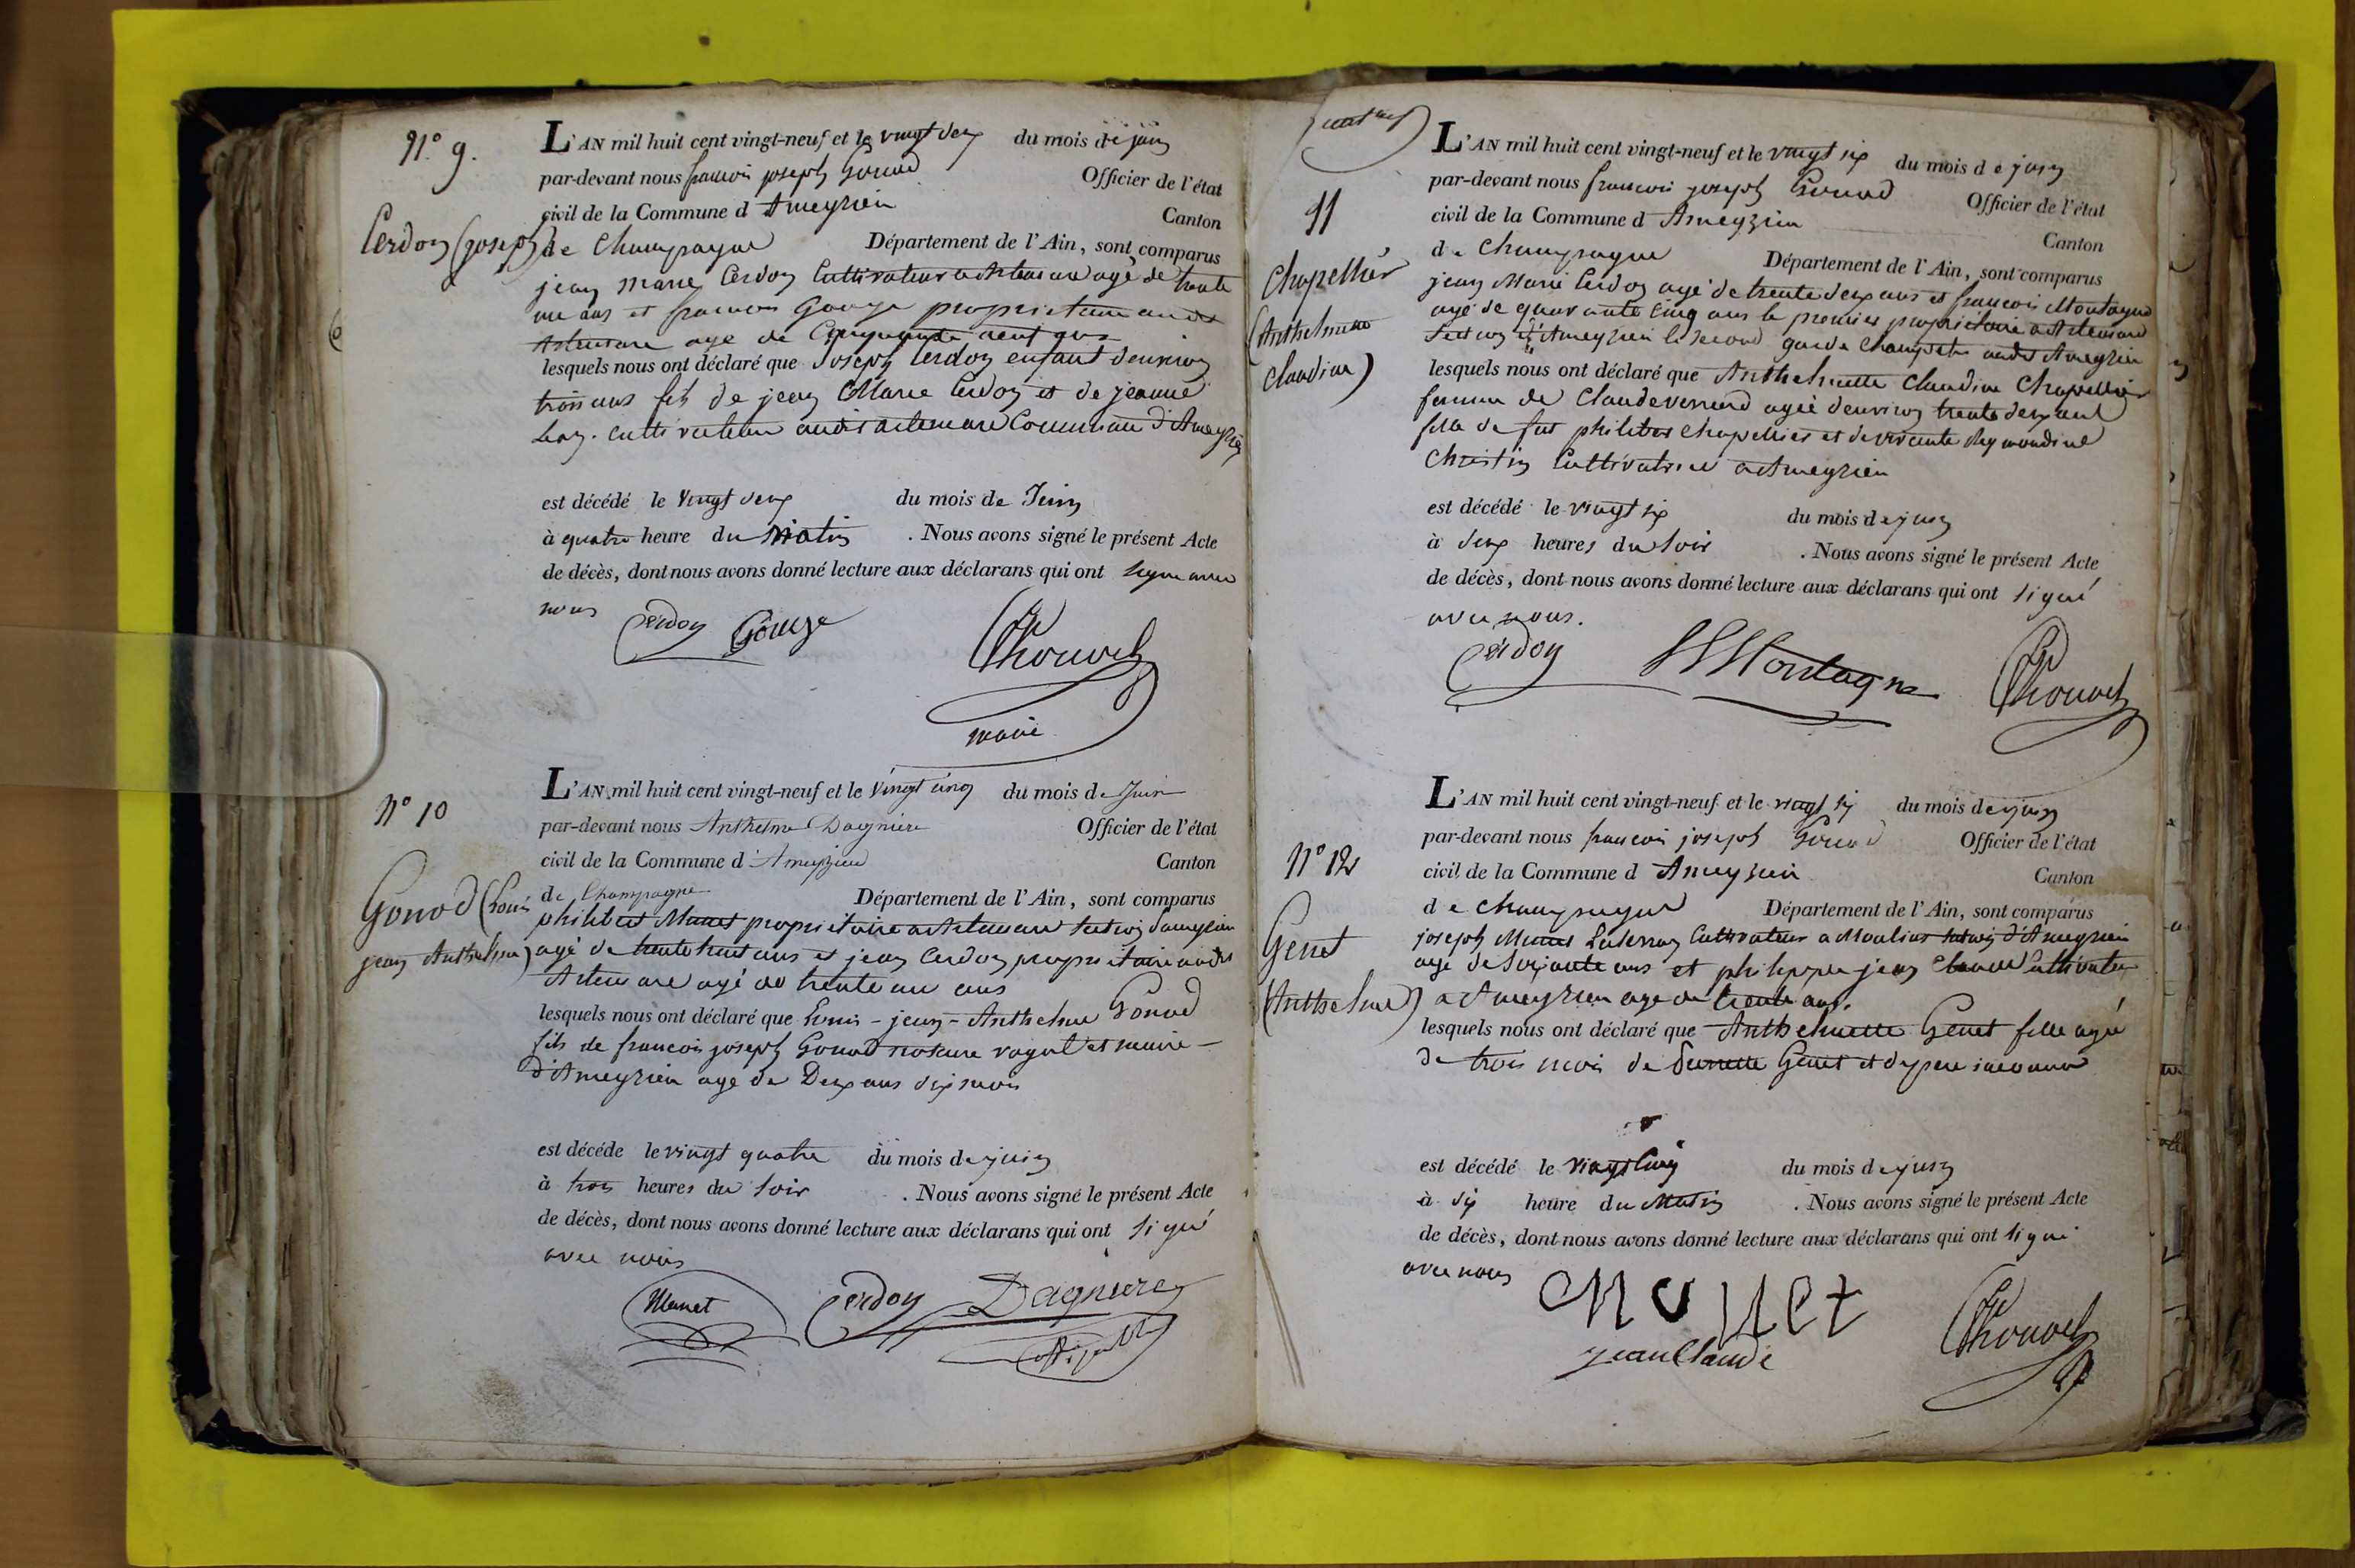 N.° 9.
Cerdon (joseph)
L'AN mil huit cent vingt-neuf et le vingt deux du mois de juin
par-devant nous francois joseph Gonod Officier de l'état
civil de la Commune d Ameyzieu Canton
de Champagne Département de l'Ain, sont comparus
jean Marie Cerdon Cultivateur a Artemare agé de trente
un ans et francois Gouge proprietaire audit
Artemare age de Cinquante neuf ans
lesquels nous ont déclaré que Joseph Cerdon enfant denviron
trois ans fils de jean Marie Cerdon et de jeanne
cultivateur audit artemare Commune d'Ameyzieu
est décédé le Vingt deux du mois de Juin
à quatre heure du Matin . Nous avons signé le présent Acte
de décès, dont nous avons donné lecture aux déclarans qui ont signe avec
nous
Cerdon Gouge
maire
N° 10
Gonod (Louis
jean Anthelme)
L'AN mil huit cent vingt-neuf et le vingt cinq du mois de Juin
par-devant nous Anthelme Dagniere Officier de l'état
civil de la Commune d'Ameyzieu Canton
de Champagne Département de l'Ain, sont comparus
philibert Manet proprietaire a Artemare section d'ameyzieu
agé de trente huit ans et jean Cerdon proprietaire audit
Artemare agé de trente un ans
lesquels nous ont déclaré que Louis - jean - Anthelme Gonod
fils de francois joseph Gonod notaire royal et maire
d'Ameyzieu age de Deux ans dix mois
est décéde le vingt quatre du mois de juin
à trois heures du soir . Nous avons signé le présent Acte
de décès, dont nous avons donné lecture aux déclarans qui ont signé
avec nous
Manet Cerdon Dagniere
11
Chapellier
(Anthelmette
Claudine)
L'AN mil huit cent vingt-neuf et le vingt six du mois de juin
par-devant nous francois joseph Gonod Officier de l'état
civil de la Commune d Ameyzieu Canton
de Champagne Département de l'Ain, sont comparus
jean Marie Cerdon agé de trente deux ans et francois Montagne
agé de quarante Cinq ans le premier propriétaire a Artemare
section d'Ameyzieu le second garde Champetre audit Ameyzieu
lesquels nous ont déclaré que Anthelmette Claudine Chapellier
femme de Claude agée denviron trente deux ans
fille de fut philibert Chapellier et de vivante
Christin Cultivatrice a Ameyzieu
est décédé le vingt six du mois de juin
à deux heures du soir . Nous avons signé le présent Acte
de décès, dont nous avons donné lecture aux déclarans qui ont signé
avec nous.
Cerdon Montagne
N° 12
Genet
(Anthelme)
L'AN mil huit cent vingt-neuf et le vingt six du mois de juin
par-devant nous francois joseph Gonod Officier de l'état
civil de la Commune d Ameyzieu Canton
de Champagne Département de l'Ain, sont comparus
joseph Cultivateur a Moulins d'Ameyzieu
age de Soixante ans et philippe jean Claude Cultivateur
a Ameyzieu age de trente ans.
lesquels nous ont déclaré que Anthelmette Genet fille agée
de trois mois de Genet et de pere inconnu
est décédé le vingt Cinq du mois de juin
à six heure du Matin . Nous avons signé le présent Acte
de décès, dont nous avons donné lecture aux déclarans qui ont signé
avec nous
jean Claude